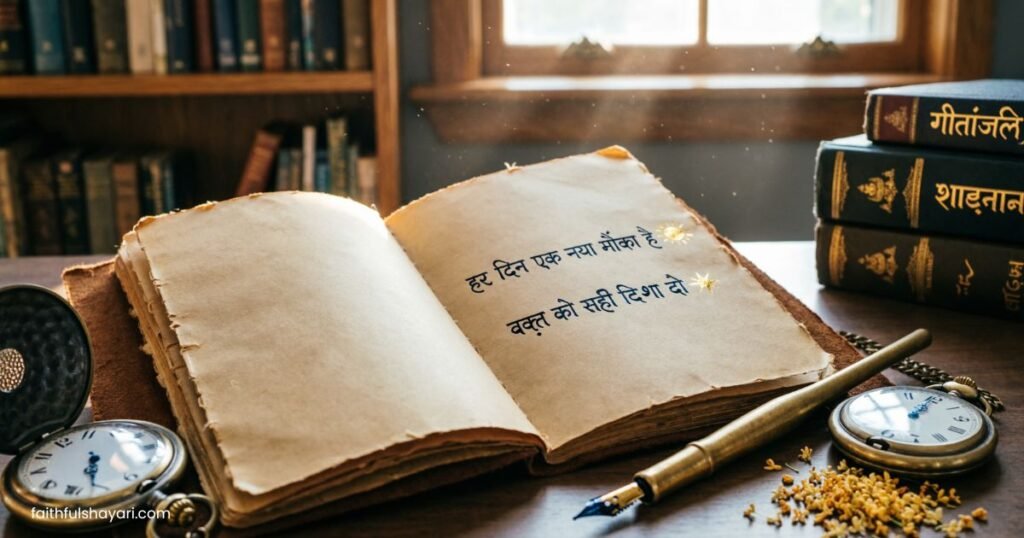 हर दिन एक नया मौका है
वक़्त को सही दिशा दो
गीतांजलि
faithfulshayari.com